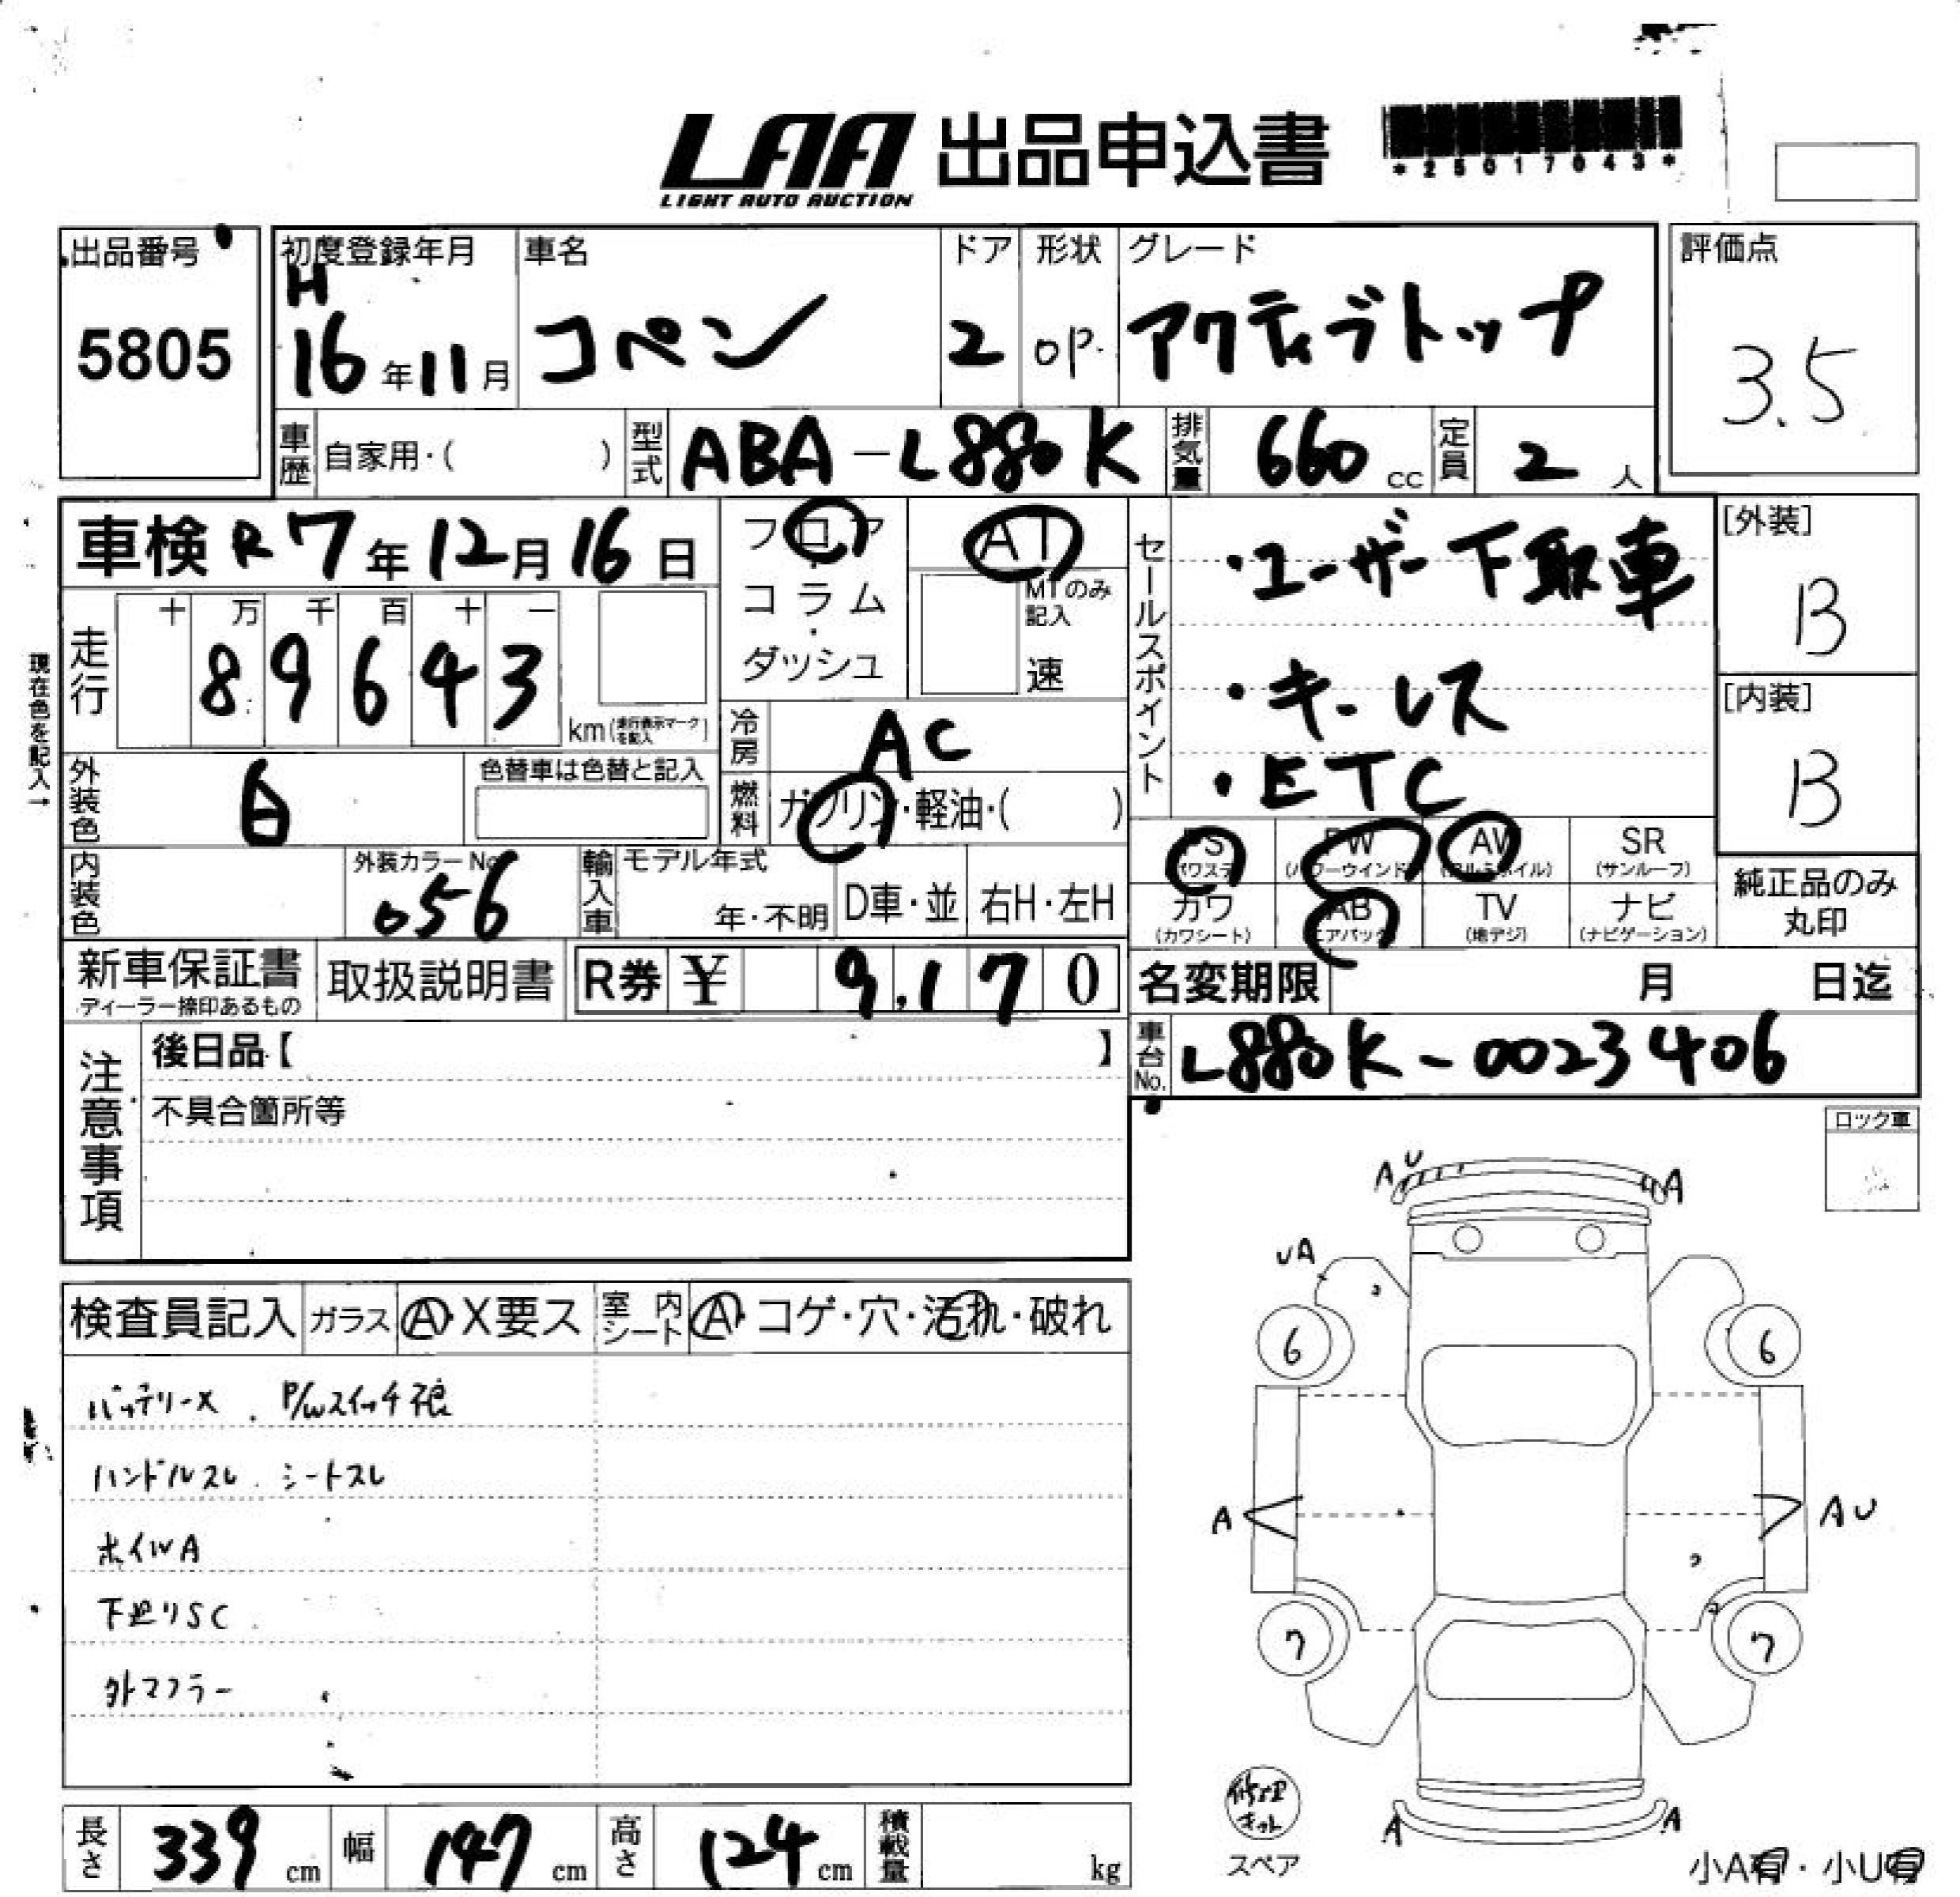 LAA 出品申込書
LIGHT AUTO AUCTION
*25017043*
出品番号
5805
初度登録年月
H
16年11月
車名
コペン
ドア
2
形状
OP.
グレード
アクティブトップ
評価点
3.5
車歴 自家用・( )
型式 ABA-L880K
排気量 660 cc
定員 2 人
車検 R7年12月16日
フロア
・
コラム
・
ダッシュ
AT
MTのみ
記入
速
現在色を記入→
走行
十 万 千 百 十 一
8 9 6 4 3
km(走行表示マークを記入)
冷房 AC
燃料 ガソリン・軽油・( )
外装色 白
色替車は色替と記入
内装色
外装カラーNo.
056
輸入車
モデル年式
年・不明
D車・並
右H・左H
セールスポイント
・ユーザー下取車
・キーレス
・ETC
[外装]
B
[内装]
B
PS
(パワステ)
PW
(パワーウインド)
AW
(アルミホイル)
SR
(サンルーフ)
カワ
(カワシート)
AB
(エアバック)
TV
(地デジ)
ナビ
(ナビゲーション)
純正品のみ
丸印
新車保証書
ディーラー捺印あるもの
取扱説明書
R券 ¥ 9,170
名変期限 月 日迄
車台No. L880K-0023406
注意事項
後日品【 】
不具合箇所等
ロック車
検査員記入
ガラス A・X要ス
室内シート A・コゲ・穴・汚れ・破れ
バッテリーX . P/Wスイッチ破
ハンドルスレ . シートスレ
ホイルA
下廻りSC
外マフラー
A U
A
UA
6
6
A
AU
7
7
A
A
修理
キット
スペア
小A有・小U有
長さ 339 cm
幅 147 cm
高さ 124 cm
積載量 kg